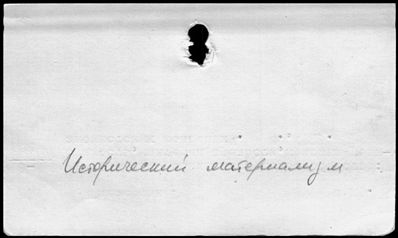 Исторический материализм